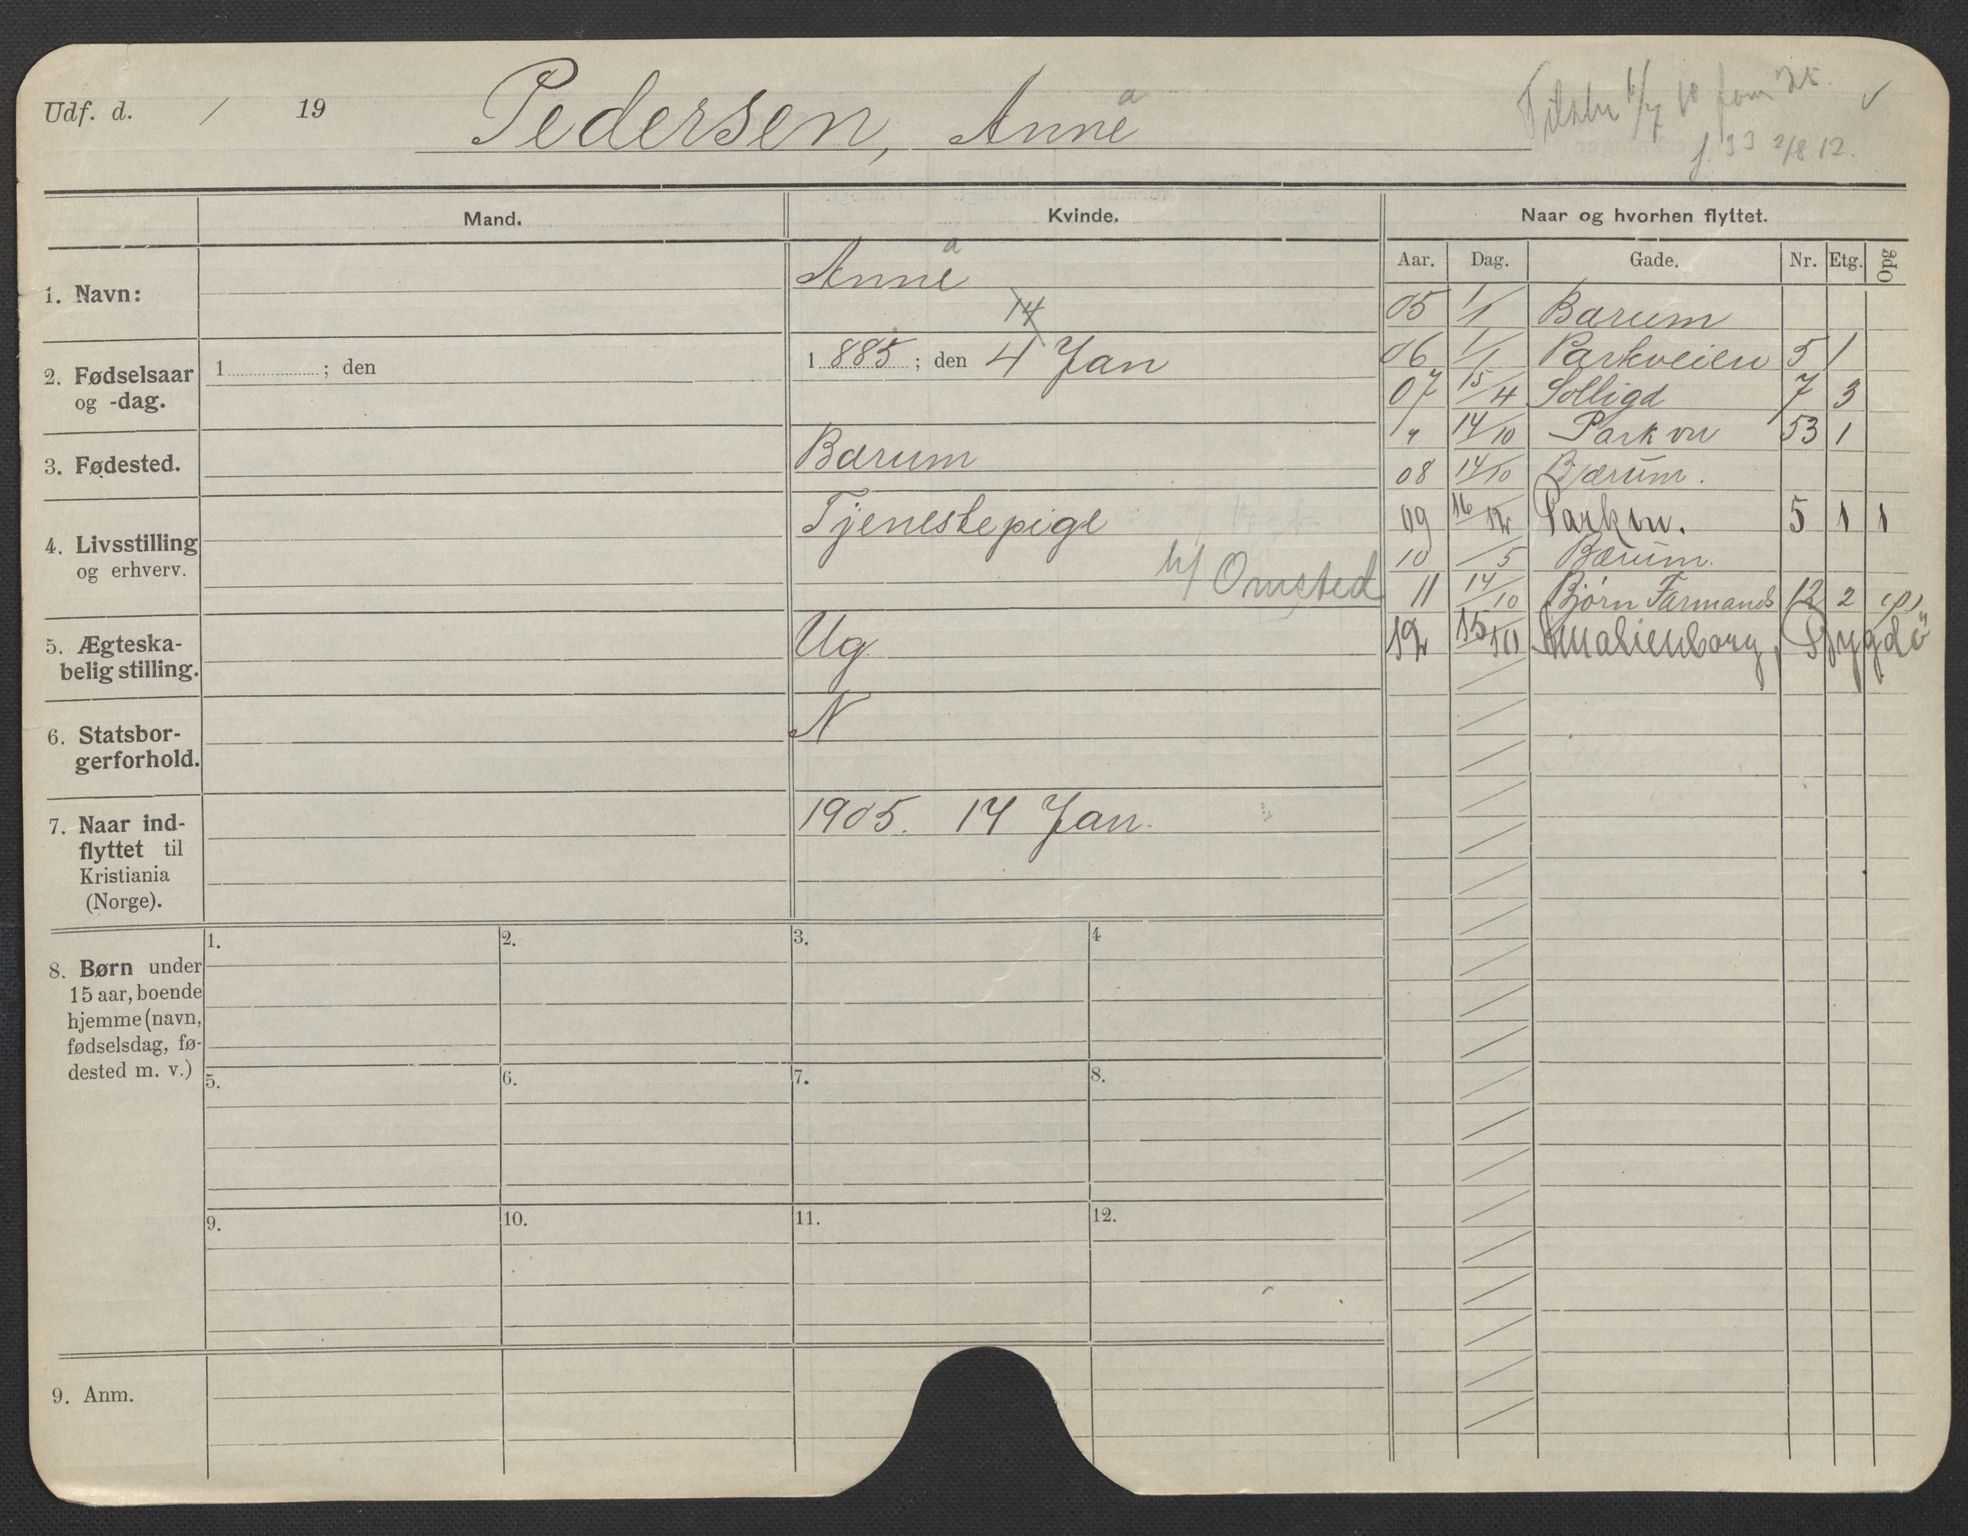 Udf. d. / 19 Pedersen, Anne a
f. 33 2/8 12.
Mand. Kvinde. Naar og hvorhen flyttet.
Aar. Dag. Gade. Nr. Etg. Opg
1. Navn: Anne a
2. Fødselsaar og -dag. 1 ; den
1 885 ; den 4 Jan
14
3. Fødested. Bærum
4. Livsstilling og erhverv. Tjenestepige
h/ Omsted
5. Ægteska-
belig stilling. Ug
6. Statsbor-
gerforhold. N
7. Naar ind-
flyttet til
Kristiania
(Norge).
1905. 14 Jan.
05 1/1 Bærum
06 1/1 Parkveien 5 1
07 15/4 Solligd 7 3
" 14/10 Park vn 53 1
08 14/10 Bærum.
09 16/12 Parkvn. 5 1 1
10 /5 Bærum.
11 14/10 Bjørn Farmands 12 2
12 15/10 Amalienborg, Bygdö
8. Børn under
15 aar, boende
hjemme (navn,
fødselsdag, fø-
dested m. v.)
1. 2. 3. 4
5. 6. 7. 8.
9. 10. 11. 12.
9. Anm.